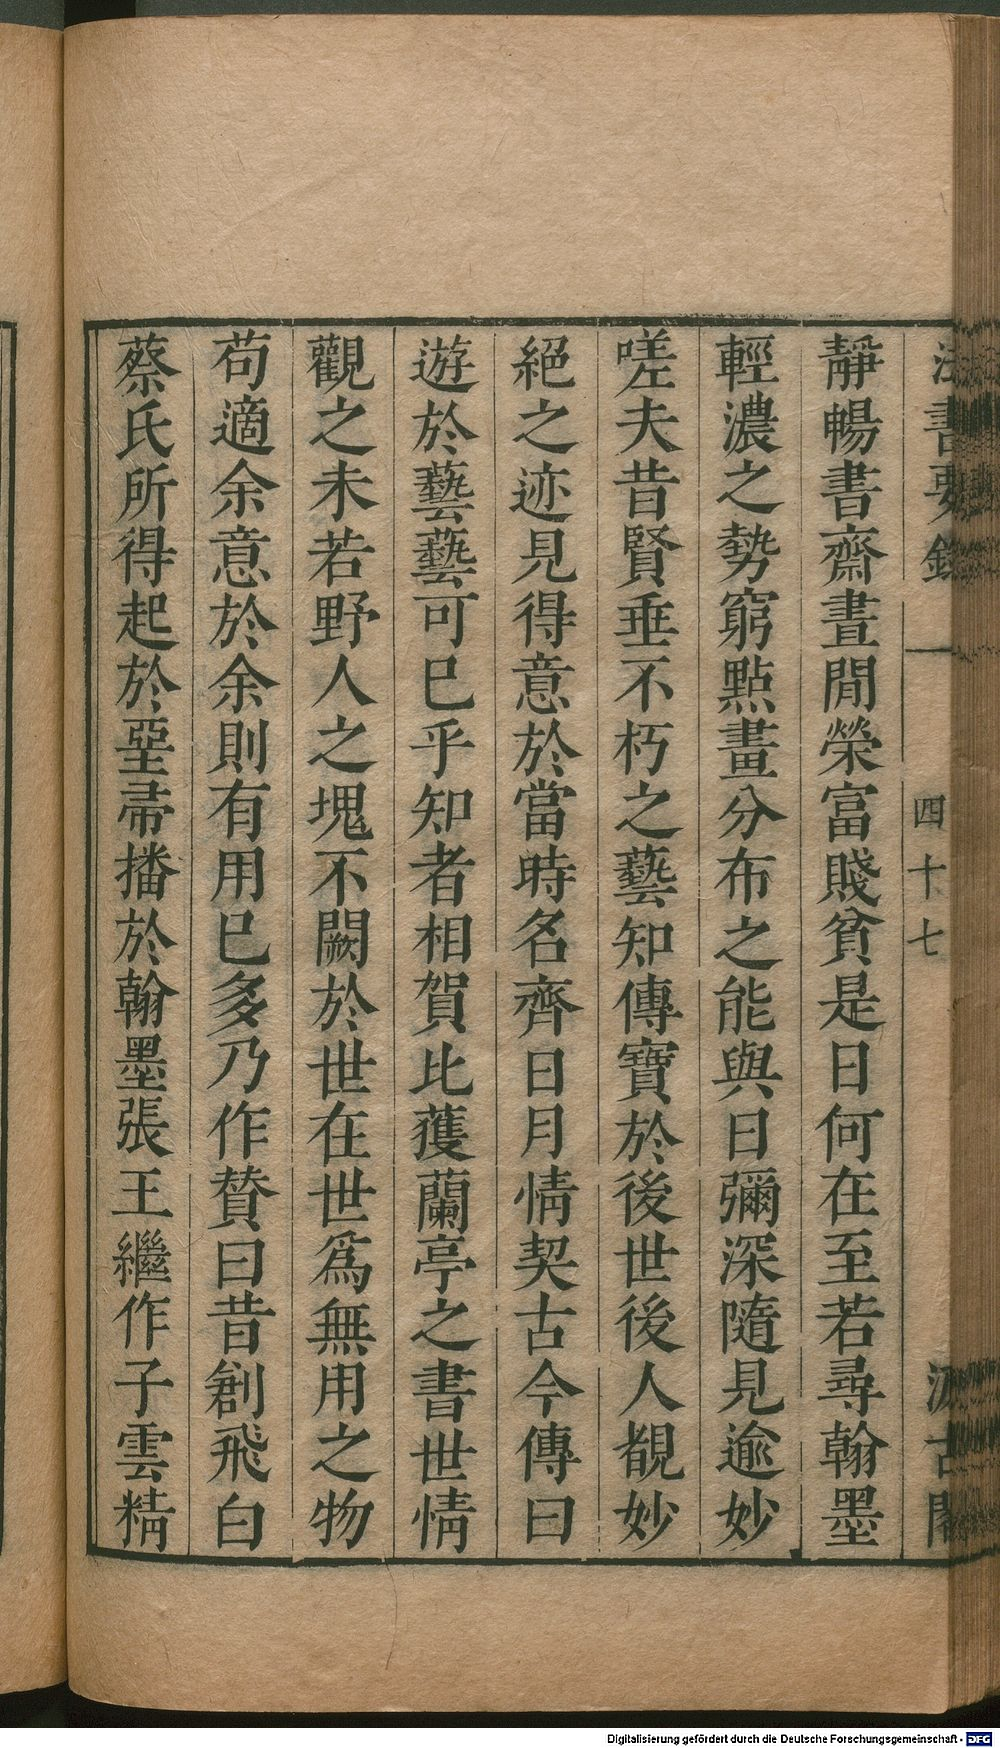 法書要錄 一 四十七 汲古閣
靜暢書齋晝閒榮富賤貧是日何在至若尋翰墨
輕濃之勢窮點畫分布之能與日彌深隨見逾妙
嗟夫昔賢垂不朽之藝知傳寶於後世後人覩妙
絕之迹見得意於當時名齊日月情契古今傳曰
遊於藝藝可已乎知者相賀比蒦蘭亭之書世情
觀之未若野人之塊不闕於世在世爲無用之物
苟適余意於余則有用已多乃作贊曰昔創飛白
蔡氏所得起於堊帚播於翰墨張王繼作子雲精
Digitalisierung gefördert durch die Deutsche Forschungsgemeinschaft - DFG